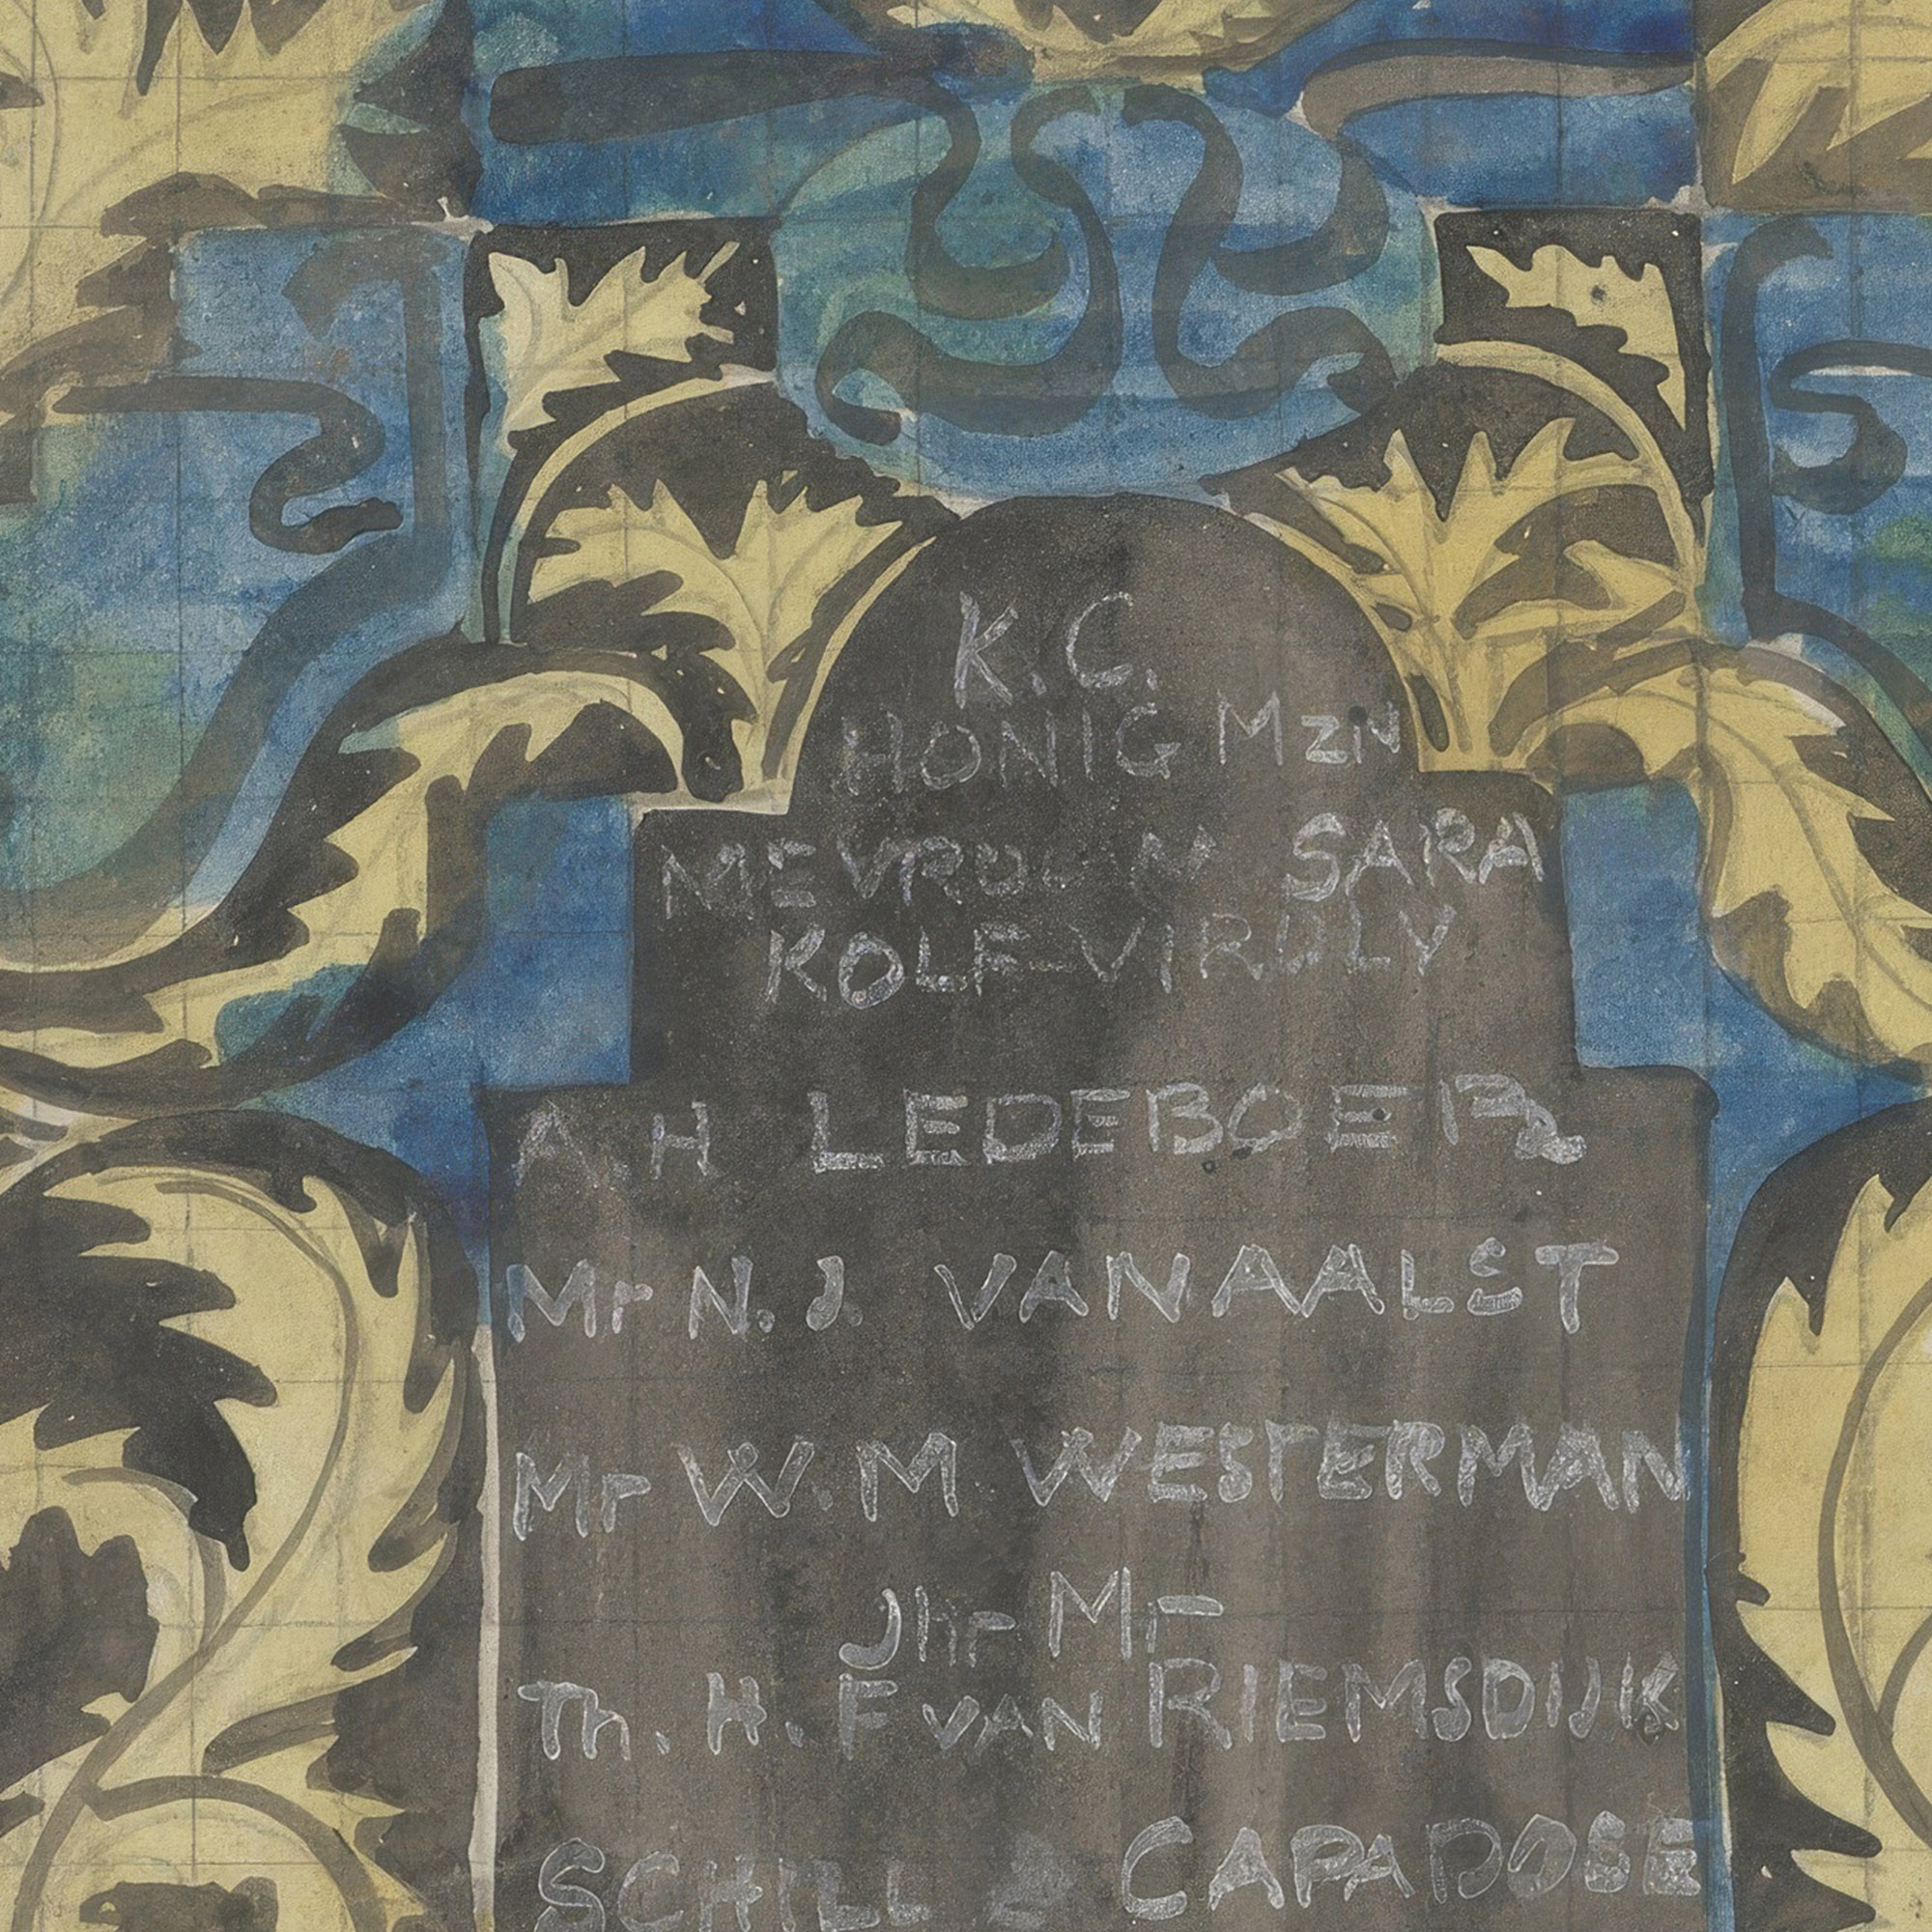 K. C.
HONIG MZN
MEVROUW SARA
KOLF-VIRULY
A. H LEDEBOER
Mr N. J. VAN AALST
Mr W. M WESTERMAN
Jhr Mr
Th. H. F VAN RIEMSDIJK
SCHILL & CAPADOSE